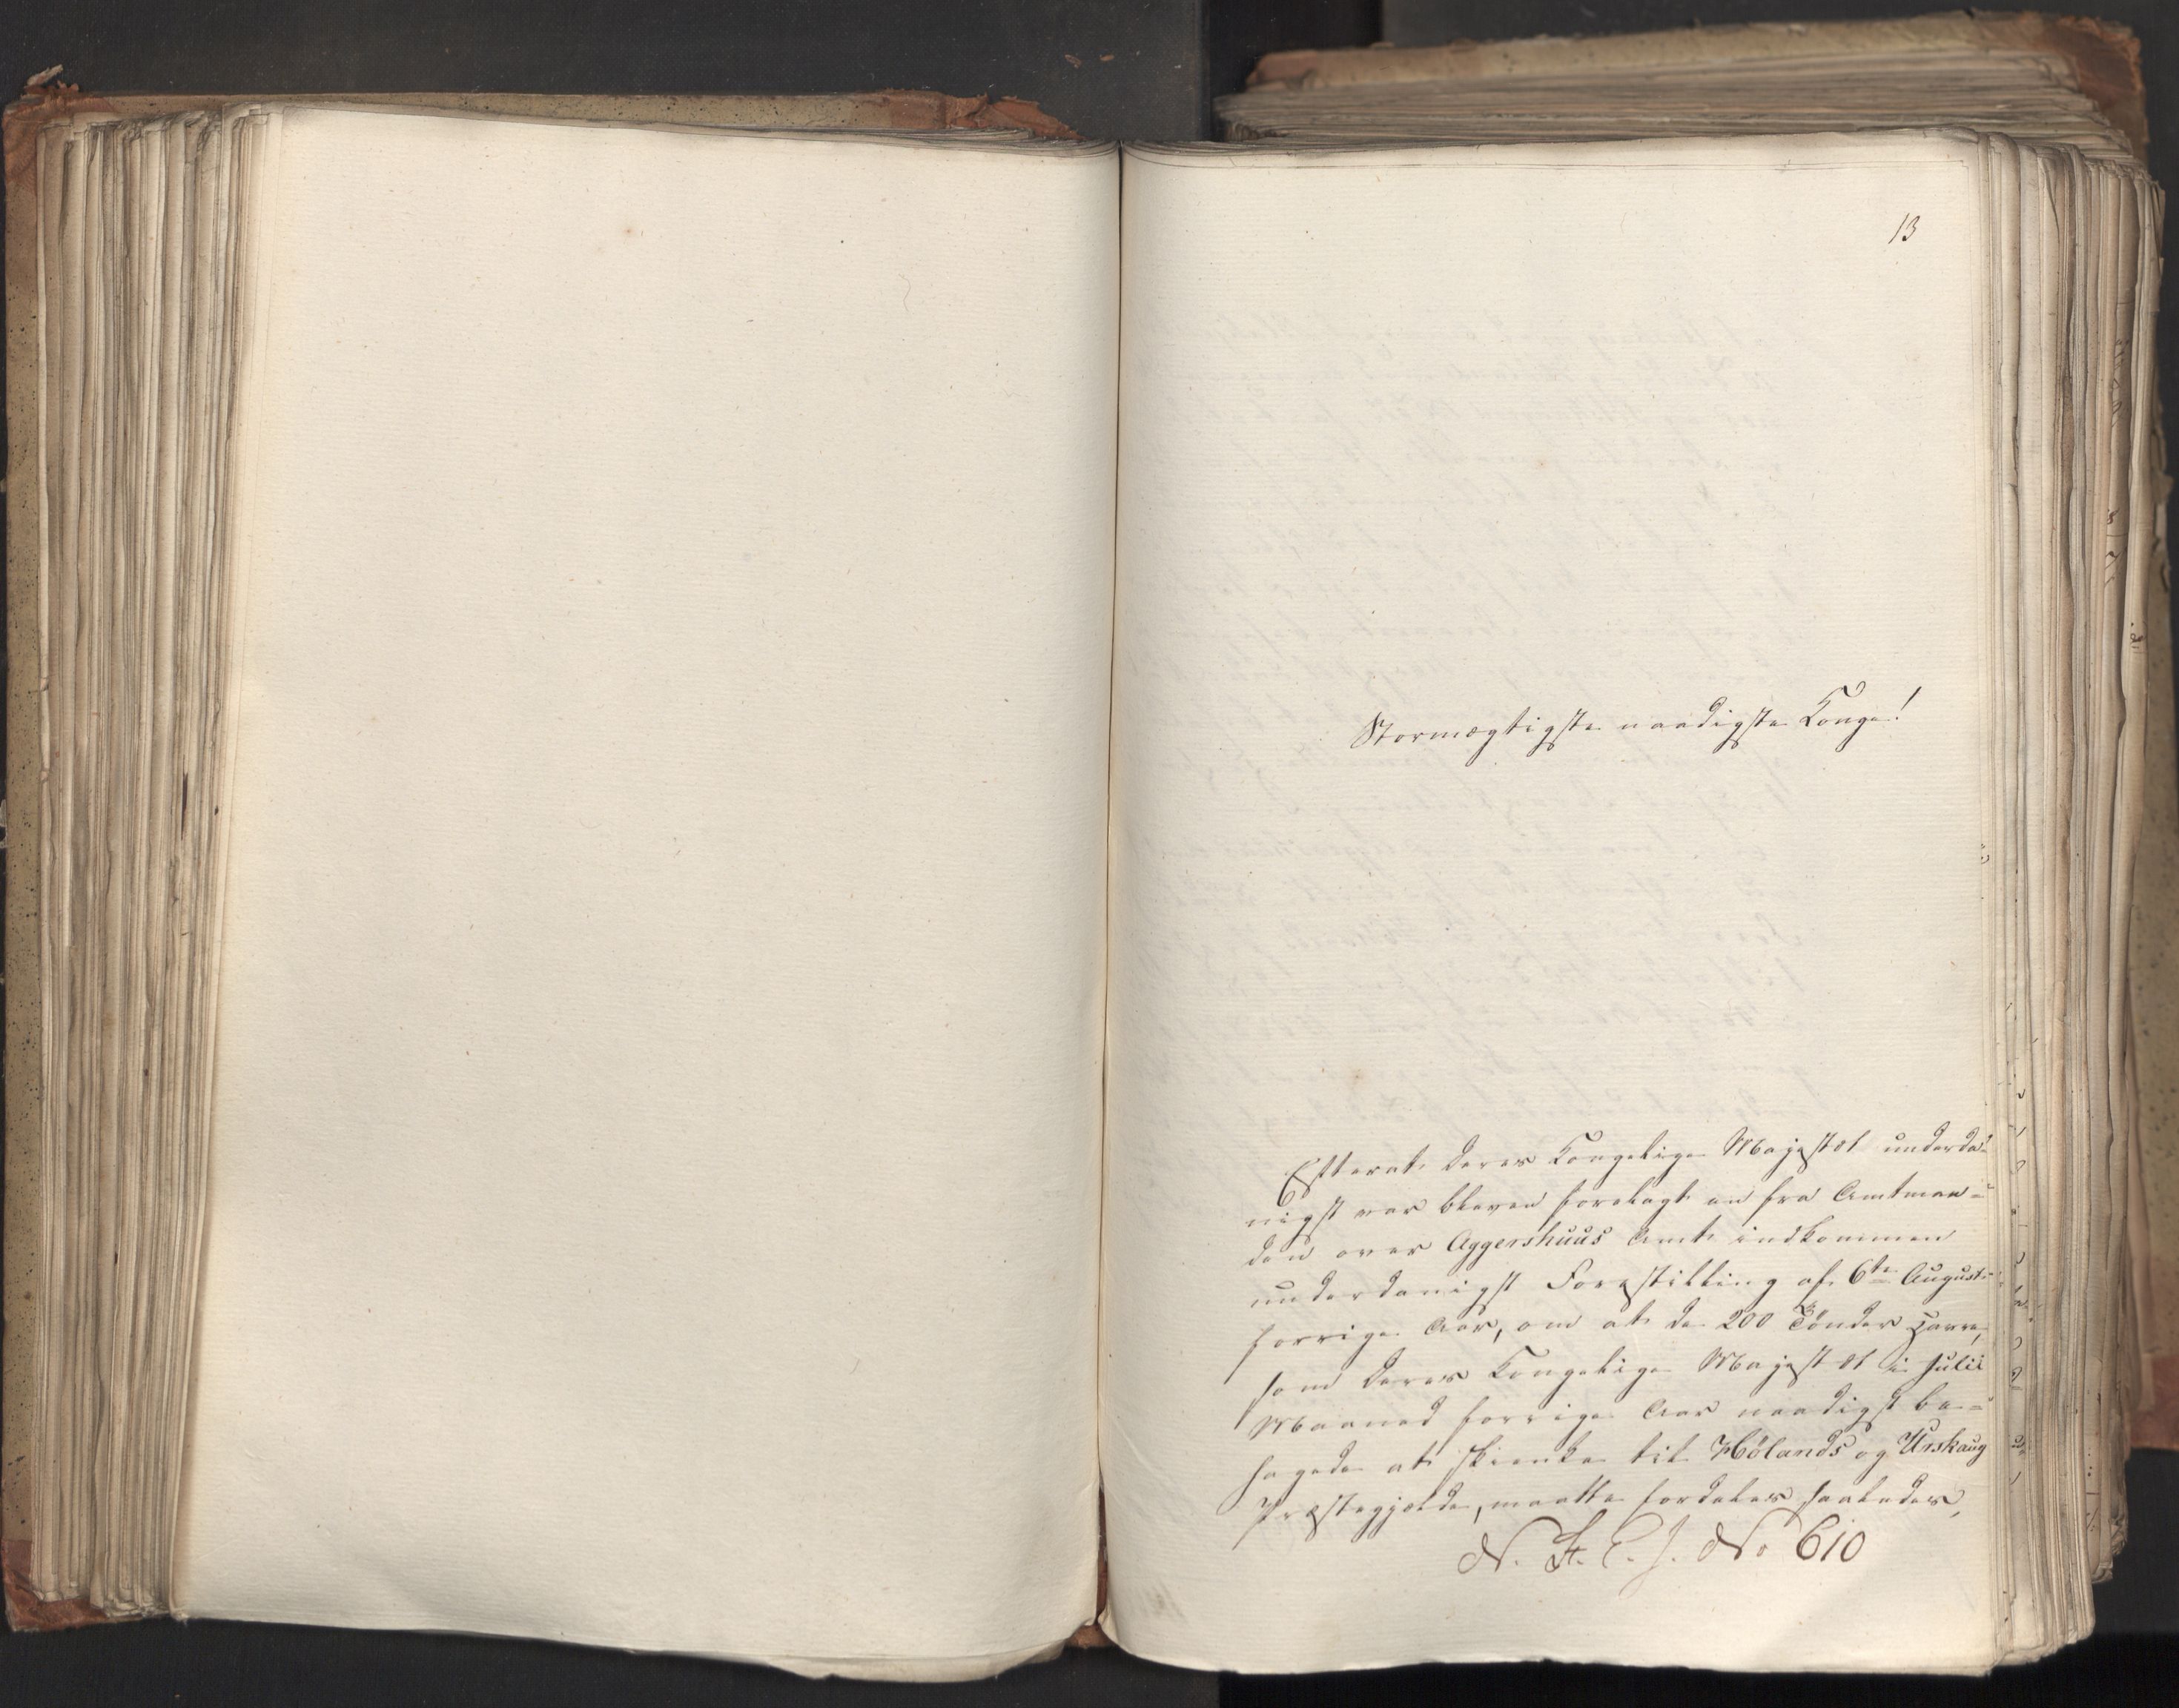 13
Stormægtigste naadigste Konge!
Efterat Deres Kongelige Majestæt underda-
nigst var bleven forelagt en fra Amtman-
den over Aggershuus Amt indkommen
underdanigst Forestilling af 6te August
forrige Aar, om at de 200 Tønder Havre,
som Deres Kongelige Majestæt i Julii
Maaned forrige Aar naadigst be-
hagede at skienke til Hølands og Urskaug
Præstegjelde, maatte fordeles saaledes,
N. St. C. J. No 610